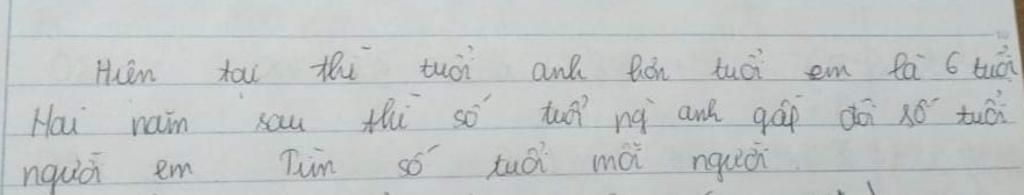 Hiên tại thì tuổi anh hơn tuổi em là 6 tuổi
Hai năm sau thì số tuổi ng` anh gấp đôi số tuổi
người em Tìm số tuổi mỗi người.